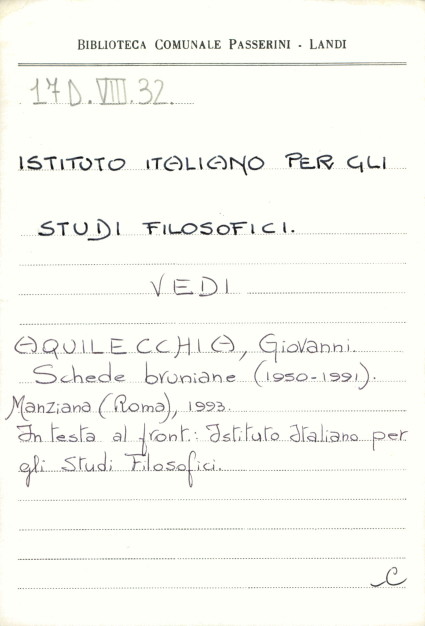 BIBLIOTECA COMUNALE PASSERINI - LANDI
17 D. VIII. 32.
ISTITUTO ITALIANO PER GLI
STUDI FILOSOFICI.
VEDI
AQUILECCHIA, Giovanni.
Schede bruniane (1950-1991).
Manziana (Roma), 1993.
In testa al front.: Istituto Italiano per
gli Studi Filosofici.
C